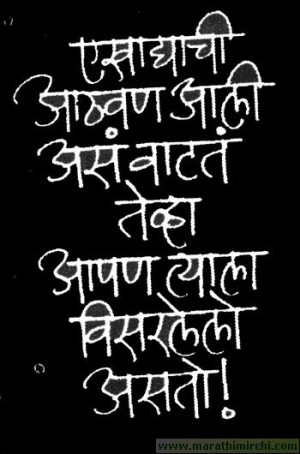 एखाद्याची
आठवण आली
असं वाटतं
तेव्हा
आपण त्याला
विसरलेलो
असतो!
www.marathimirchi.com